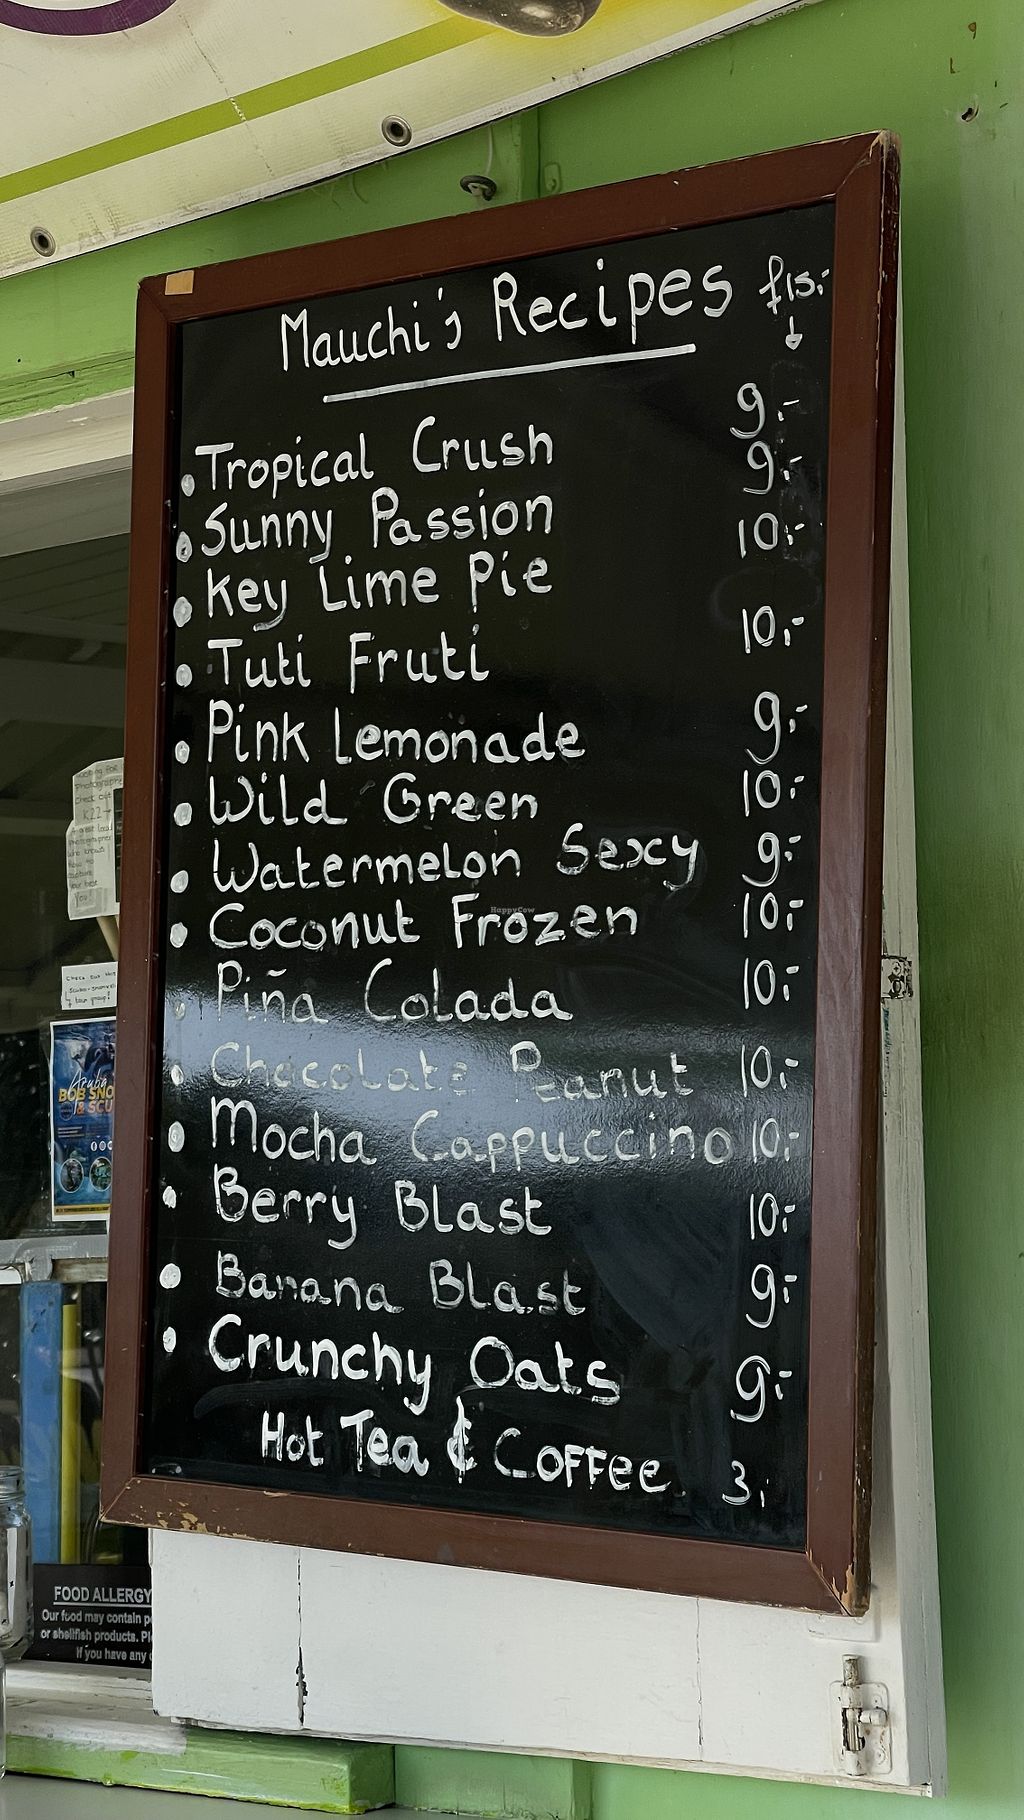 Mauchi's Recipes
Tropical Crush 9,-
Sunny Passion 9,-
Key Lime Pie 10,-
Tuti Fruti 10,-
Pink Lemonade 9,-
Wild Green 10,-
Watermelon Sexy 9,-
Coconut Frozen 10,-
Piña Colada 10,-
Chocolate Peanut 10,-
Mocha Cappuccino 10,-
Berry Blast 10,-
Banana Blast 9,-
Crunchy Oats 9,-
Hot Tea & Coffee 3,
HappyCow
Aruba
BOB SNO
& SCU
FOOD ALLERGY
Our food may contain
or shellfish products.
If you have any